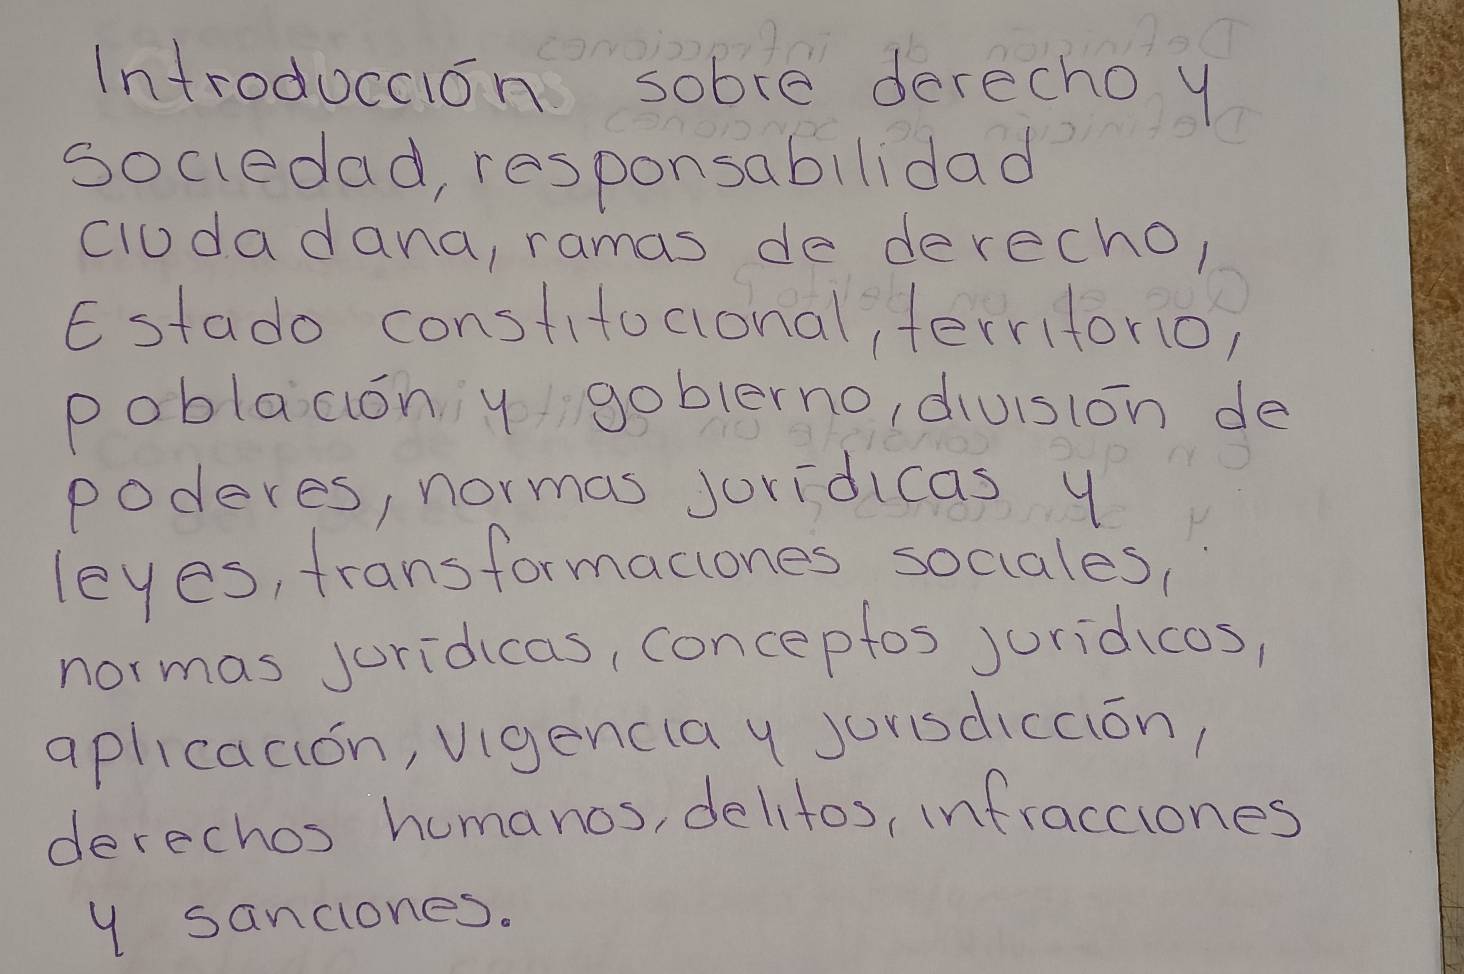 Introducción sobre derecho y
sociedad, responsabilidad
ciudadana, ramas de derecho,
Estado constitucional, territorio,
población y gobierno, división de
poderes, normas jurídicas y
leyes, transformaciones sociales,
normas jurídicas, conceptos jurídicos,
aplicación, vigencia y jurisdicción,
derechos humanos, delitos, infracciones
y sanciones.